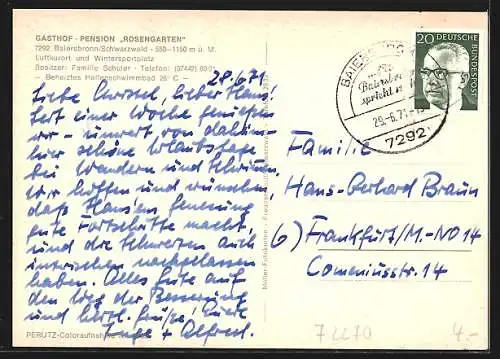 GASTHOF - PENSION „ROSENGARTEN"
7292 Baiersbronn/Schwarzwald - 550—1150 m ü. M.
Luftkurort und Wintersportplatz
Besitzer: Familie Schuler · Telefon: (07442)
— Beheiztes Hallenschwimmbad 28° C —
29.6.71
Liebe Christel, lieber Hans!
Seit einer Woche genießen
wir - unweit von
hier schöne Urlaubstage
bei Wandern und Schwimmen.
Wir hoffen und wünschen,
daß Hans'en Genesung
gute Fortschritte macht,
und die Schmerzen auch
inzwischen nachgelassen
haben. Alles Gute auf
den Weg der Besserung
und herzl. Grüße! Eure
Inge + Alfred.
PERUTZ-Coloraufnahme
20 DEUTSCHE
BUNDESPOST
BAIERSBRONN
spricht
29.-6.71
7292
Familie
Hans-Gerhard Braun
(6) Frankfurt/M.-NO 14
Comeniusstr. 14
72270
4.-